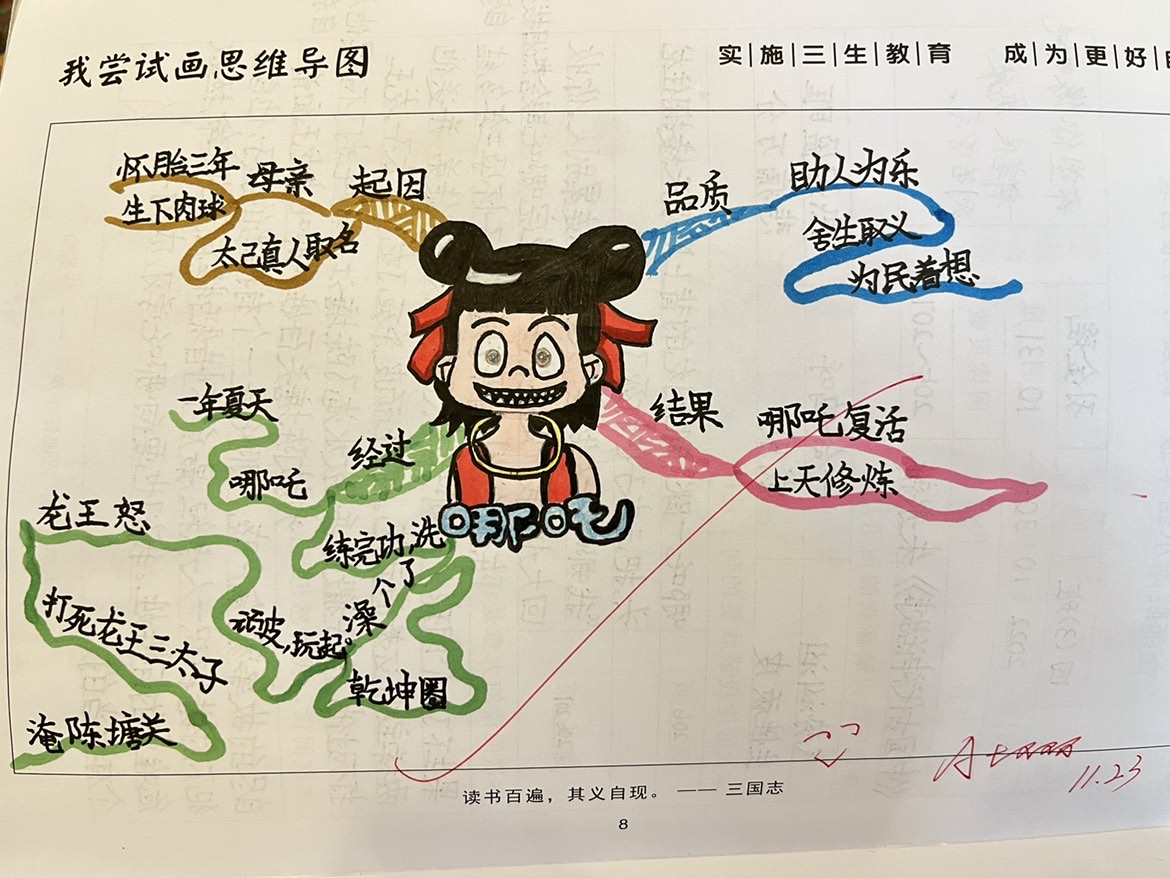 我尝试画思维导图
实施三生教育 成为更好
起因
母亲
怀胎三年
生下肉球
太己真人取名
品质
助人为乐
舍生取义
为民着想
经过
一年夏天
哪吒
练完功,洗
个了
澡
皮,玩起。
乾坤圈
龙王怒
打死龙王三太子
淹陈塘关
结果
哪吒复活
上天修炼
哪吒
11.23
读书百遍，其义自现。 —— 三国志
8